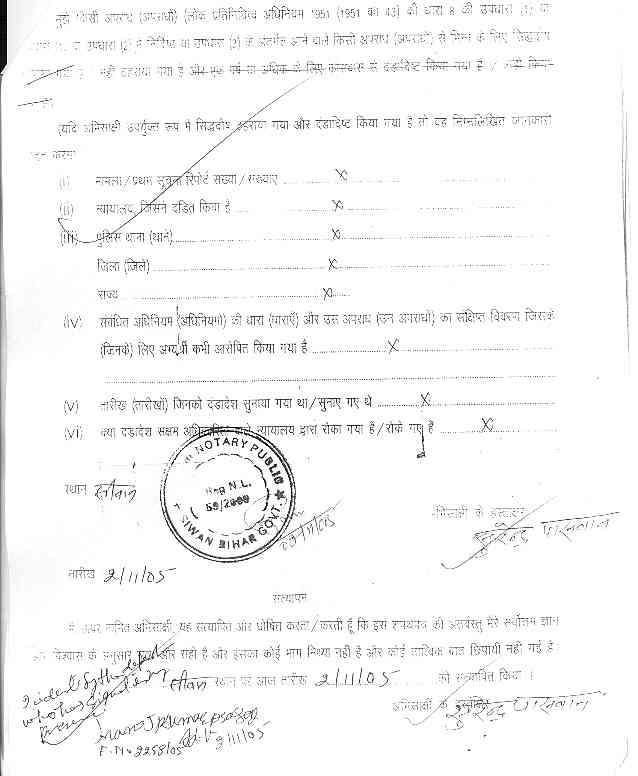 मुझे किसी अपराध (अपराधों) (लोक प्रतिनिधित्व अधिनियम 1951 (1951 का 43) की धारा 8 की उपधारा (1) या
या उपधारा (2) में निर्दिष्ट या उपधारा (3) के अंतर्गत आने वाले किसी अपराध (अपराधों) से भिन्न के लिए सिद्धदोष
नहीं ठहराया गया है और एक वर्ष या अधिक के लिए कारावास से दंडादिष्ट किया गया है / नहीं किया
(यदि अभिसाक्षी उपर्युक्त रूप में सिद्धदोष ठहराया गया और दंडादिष्ट किया गया है तो वह निम्नलिखित जानकारी
करेगा
(i) मामला/प्रथम सूचना रिपोर्ट संख्या/संख्याएं ........ X ........
(ii) न्यायालय, जिसने दंडित किया है ........ X ........
(iii) पुलिस थाना (थाने) ........ X ........
जिला (जिले) ........ X ........
राज्य ........ X ........
(IV) संबंधित अधिनियम (अधिनियमों) की धारा (धाराएँ) और उस अपराध (उन अपराधों) का संक्षिप्त विवरण जिसके
(जिनके) लिए अभ्यर्थी कभी आरोपित किया गया है ........ X ........
(V) तारीख (तारीखों) जिनको दंडादेश सुनाया गया था/सुनाए गए थे ........ X ........
(VI) क्या दंडादेश सक्षम अधिकारिता वाले न्यायालय द्वारा रोका गया है/रोके गए है ........ X ........
NOTARY PUBLIC
Reg N.L.
59/2000
SIWAN BIHAR GOVT.
स्थान सीवान
अभिसाक्षी के हस्ताक्षर
सुरेन्द्र पासवान
तारीख 2/11/05
सत्यापन
मैं ऊपर नामित अभिसाक्षी, यह सत्यापित और घोषित करता/करती हूँ कि इस शपथपत्र की अंतर्वस्तु मेरे सर्वोत्तम ज्ञान
और विश्वास के अनुसार सत्य और सही है और इसका कोई भाग मिथ्या नहीं है और कोई तात्विक बात छिपायी नहीं गई है।
सीवान स्थान पर आज तारीख 2/11/05 ........ को सत्यापित किया ।
अभिसाक्षी के हस्ताक्षर
सुरेन्द्र पासवान
who has signed
Manoj Kumar Prasad
2258/05 Adv. 2/11/05